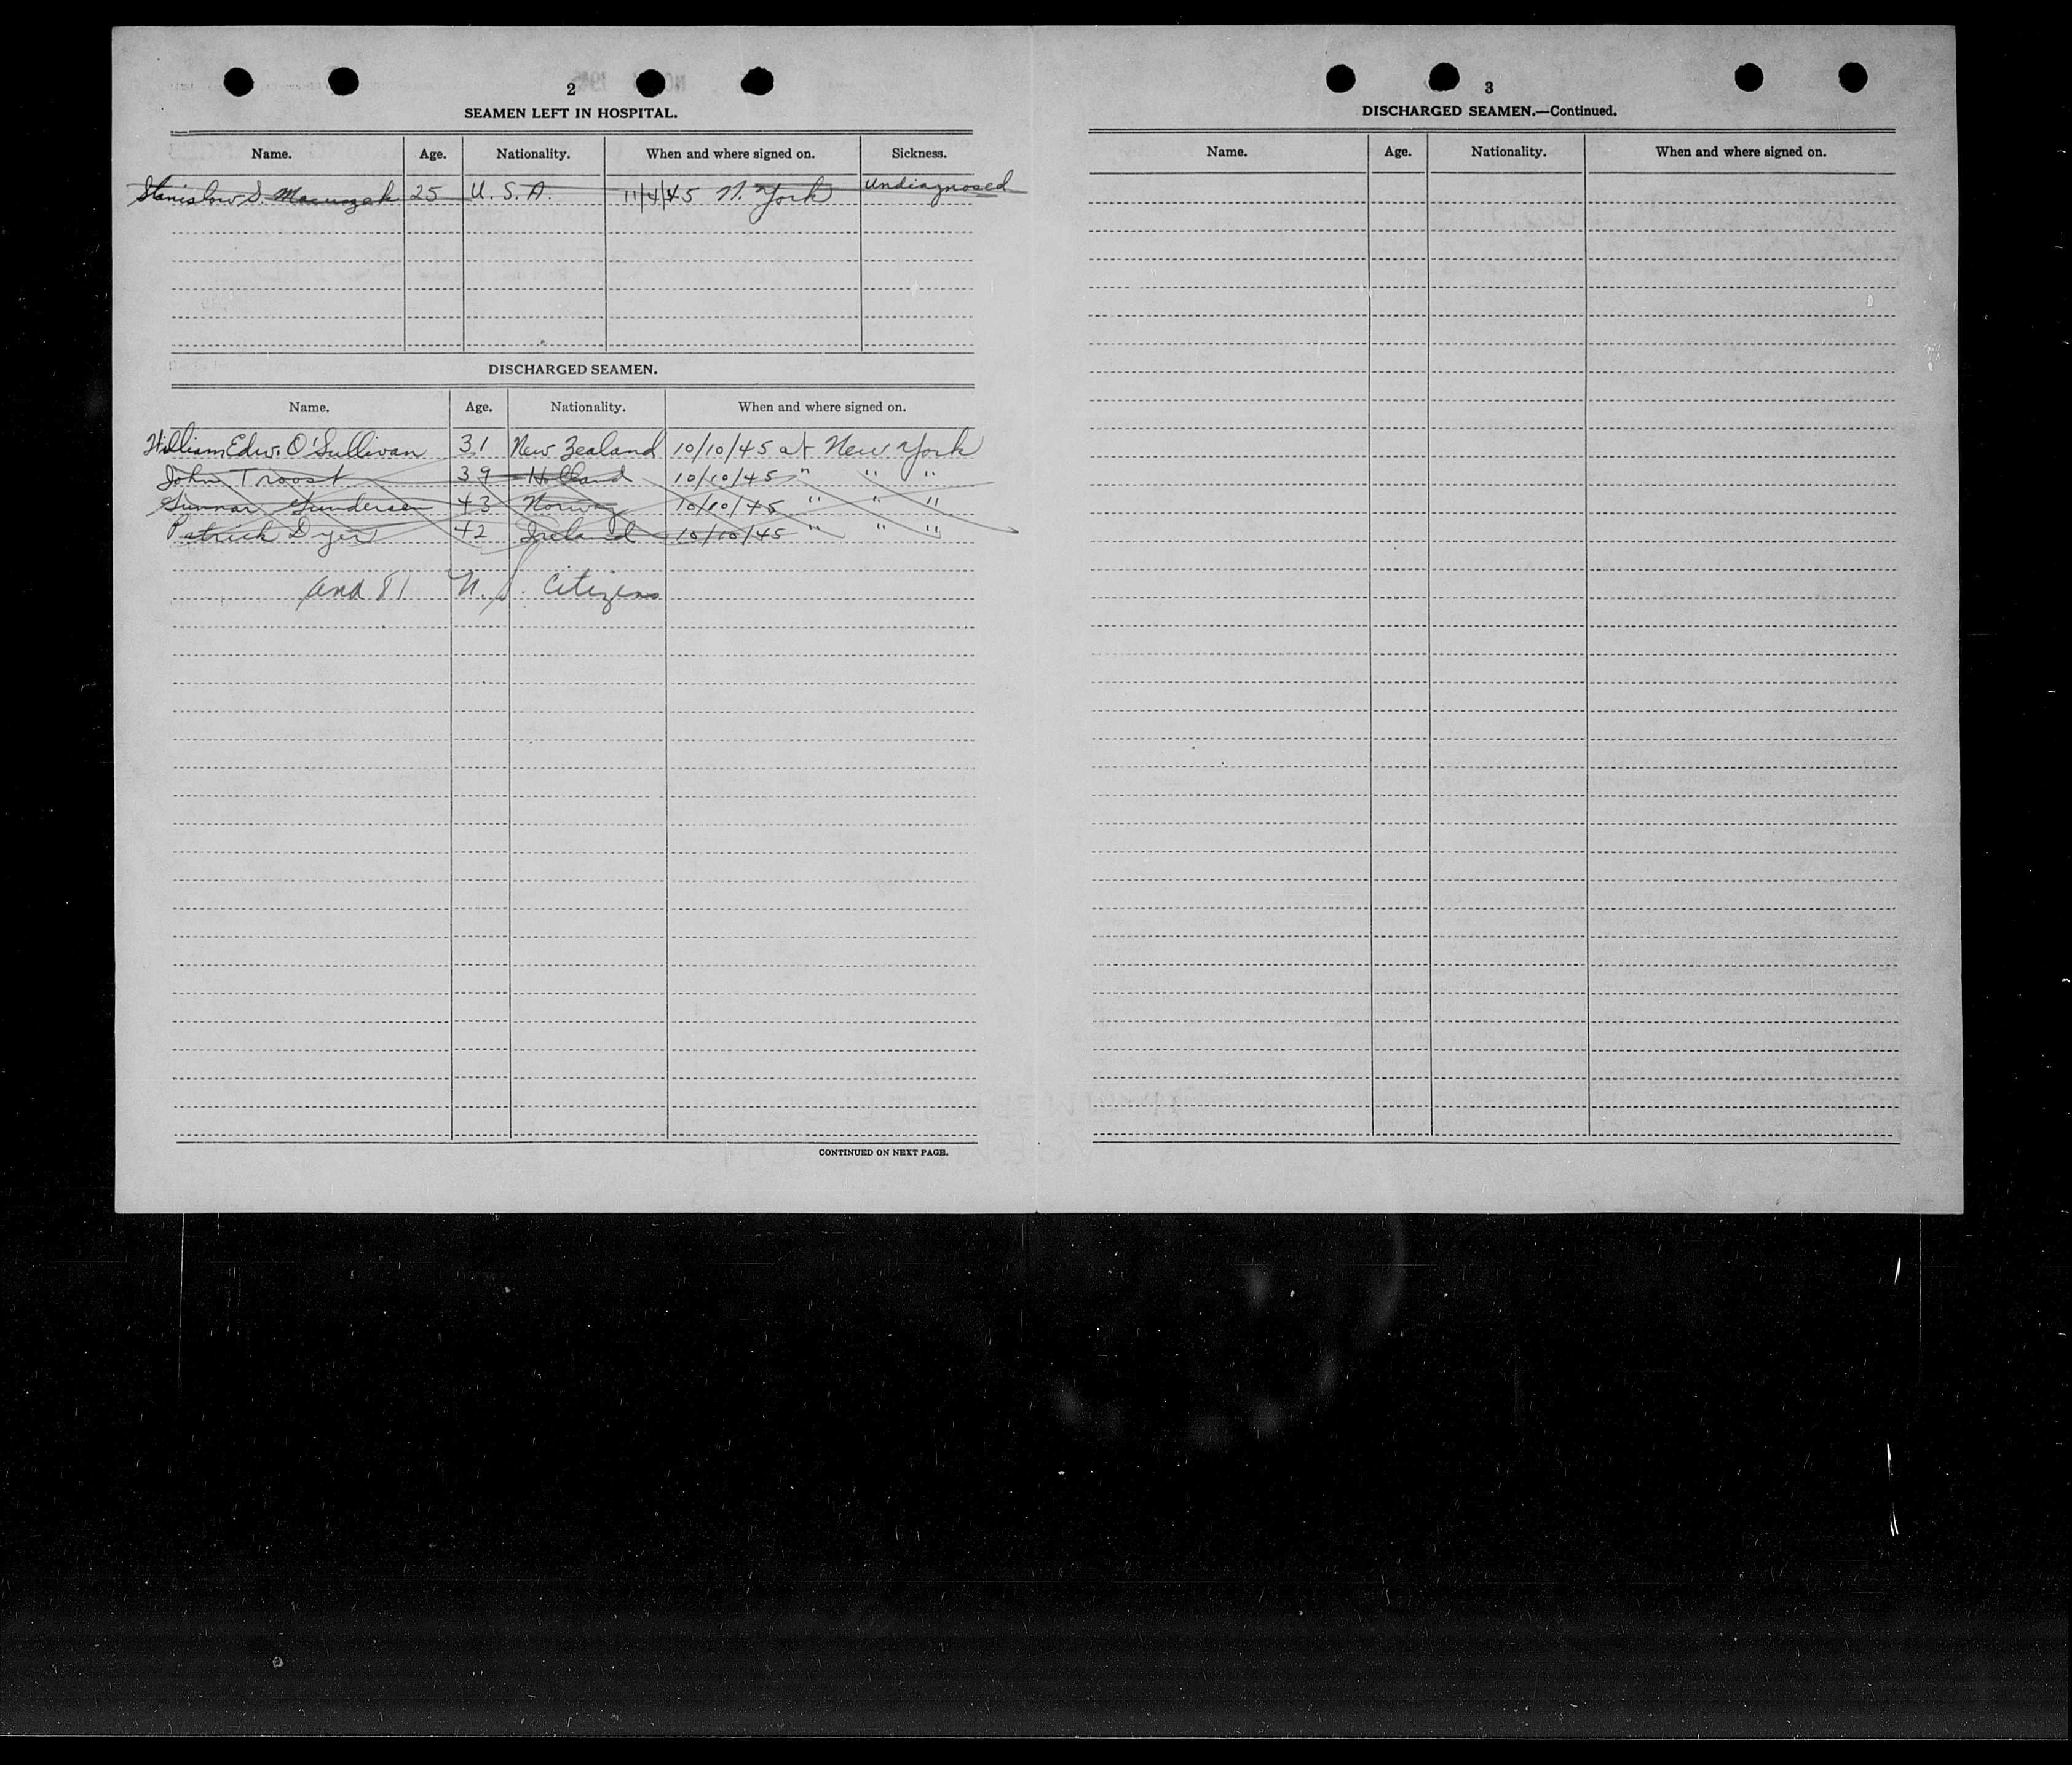 2
SEAMEN LEFT IN HOSPITAL.
Name. Age. Nationality. When and where signed on. Sickness.
Stanislow S. 25 U. S. A. 11/4/45 N. York Undiagnosed
DISCHARGED SEAMEN.
Name. Age. Nationality. When and where signed on.
William Edw. O'Sullivan 31 New Zealand 10/10/45 at New York
John Troost 39 Holland 10/10/45 " " "
Gunnar Gundersen 43 Norway 10/10/45 " " "
Patrick Dyer 42 Ireland 10/10/45 " " "
and 81 U. S. Citizens
CONTINUED ON NEXT PAGE.
3
DISCHARGED SEAMEN.—Continued.
Name. Age. Nationality. When and where signed on.